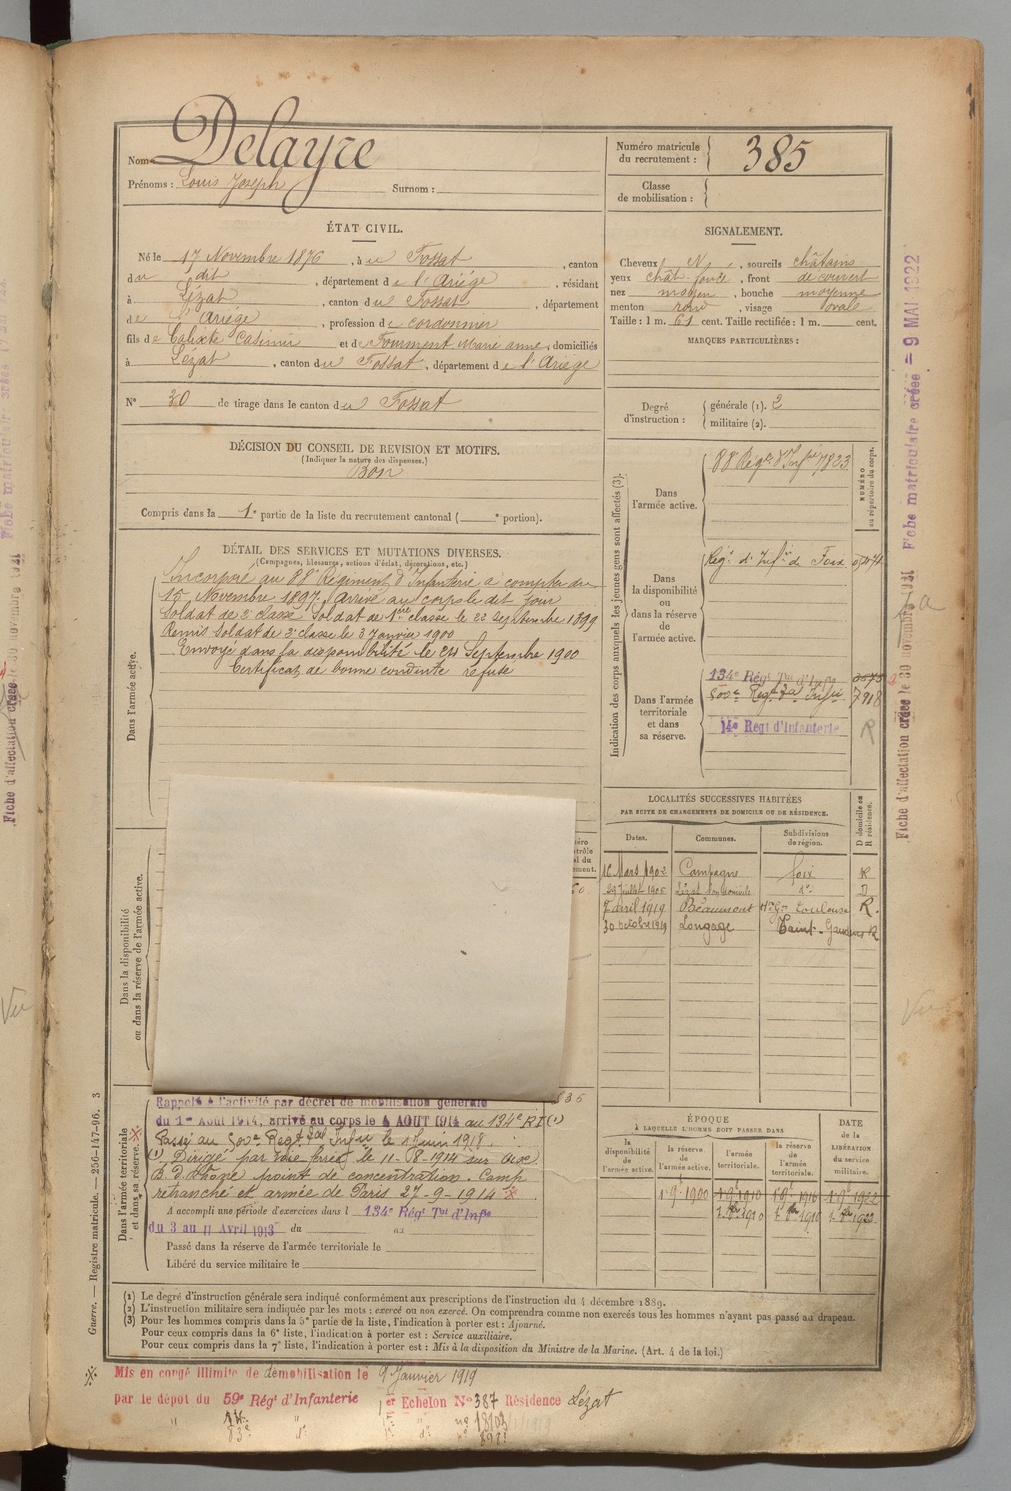 Nom Delayre
Prénoms : Louis Joseph Surnom :
Numéro matricule du recrutement : 385
Classe de mobilisation :
ÉTAT CIVIL.
Né le 17 Novembre 1876, à Fossat, canton
du dit, département de l'Ariége, résidant
à Lézat, canton du Fossat, département
de l'Ariége, profession de cordonnier
fils de Calixte Casimir et de Fourment Marie anne, domiciliés
à Lézat, canton du Fossat, département de l'Ariége
N° 30 de tirage dans le canton du Fossat
SIGNALEMENT.
Cheveux N, sourcils châtains
yeux chât-foncé, front découvert
nez moyen, bouche moyenne
menton rond, visage oval
Taille : 1 m. 61 cent. Taille rectifiée : 1 m. cent.
MARQUES PARTICULIÈRES :
Degré d'instruction : générale (1). 2
militaire (2).
DÉCISION DU CONSEIL DE REVISION ET MOTIFS.
(Indiquer la nature des dispenses.)
Bon
Compris dans la 1e partie de la liste du recrutement cantonal ( e portion).
DÉTAIL DES SERVICES ET MUTATIONS DIVERSES.
(Campagnes, blessures, actions d'éclat, décorations, etc.)
Dans l'armée active.
Incorporé au 88e Régiment d'Infanterie à compter du
15 Novembre 1897. Arrivé au corps le dit jour
Soldat de 2e classe. Soldat de 1ère classe le 22 septembre 1899
Remis Soldat de 2e classe le 3 Janvier 1900
Envoyé dans la disponibilité le 24 Septembre 1900
Certificat de bonne conduite refusé
Indication des corps auxquels les jeunes gens sont affectés (3).
NUMÉRO au répertoire du corps.
Dans l'armée active.
88e Régt d'Infie 7823
Dans la disponibilité ou dans la réserve de l'armée active.
Régt d'Infie de Foix
Dans l'armée territoriale et dans sa réserve.
134e Régt Tal d'Infie
500e Régt Tal Infie 7918
14e Regt d'Infanterie R
LOCALITÉS SUCCESSIVES HABITÉES
PAR SUITE DE CHANGEMENTS DE DOMICILE OU DE RÉSIDENCE.
Dates. Communes. Subdivisions de région. D domicile ou R résidence.
16 Mars 1902 Campagne foix R
29 Juillet 1905 Lézat son domicile do D
7 avril 1919 Béaumont Hte Gne Toulouse R.
30 octobre 1919 Longage Saint-Gaudens R
Dans la disponibilité ou dans la réserve de l'armée active.
Dans l'armée territoriale et dans sa réserve.
Rappelé à l'activité par décret de mobilisation générale
du 1er Août 1914, arrivé au corps le 4 AOUT 1914 au 134e RI (1)
Passé au 500e Regt Tal Infie le 1 Juin 1918.
(1) Dirigé par voie ferrée le 11-08-1914 sur Aix
B. d. Rhone point de concentration. Camp
retranché et armée de Paris 27-9-1914
A accompli une période d'exercices dans l 134e Régt Tal d'Infie
du 3 au 11 Avril 1913 du au
Passé dans la réserve de l'armée territoriale le
Libéré du service militaire le
ÉPOQUE
À LAQUELLE L'HOMME DOIT PASSER DANS
la disponibilité de l'armée active. la réserve de l'armée active. l'armée territoriale. la réserve de l'armée territoriale.
DATE de la LIBÉRATION du service militaire.
1 9e 1900 1 9e 1910 1 9e 1916 1 9e 1922
(1) Le degré d'instruction générale sera indiqué conformément aux prescriptions de l'instruction du 4 décembre 1889.
(2) L'instruction militaire sera indiquée par les mots : exercé ou non exercé. On comprendra comme non exercés tous les hommes n'ayant pas passé au drapeau.
(3) Pour les hommes compris dans la 5e partie de la liste, l'indication à porter est : Ajourné.
Pour ceux compris dans la 6e liste, l'indication à porter est : Service auxiliaire.
Pour ceux compris dans la 7e liste, l'indication à porter est : Mis à la disposition du Ministre de la Marine. (Art. 4 de la loi.)
Mis en congé illimité de démobilisation le 9 Janvier 1919
par le dépôt du 59e Régt d'Infanterie 1er Echelon N° 387 Résidence Lézat
Guerre. — Registre matricule. — 256-147-96. 3
Fiche d'affectation créée le 30 novembre 1921
Fiche matriculaire créée = 9 MAI 1922
Vu